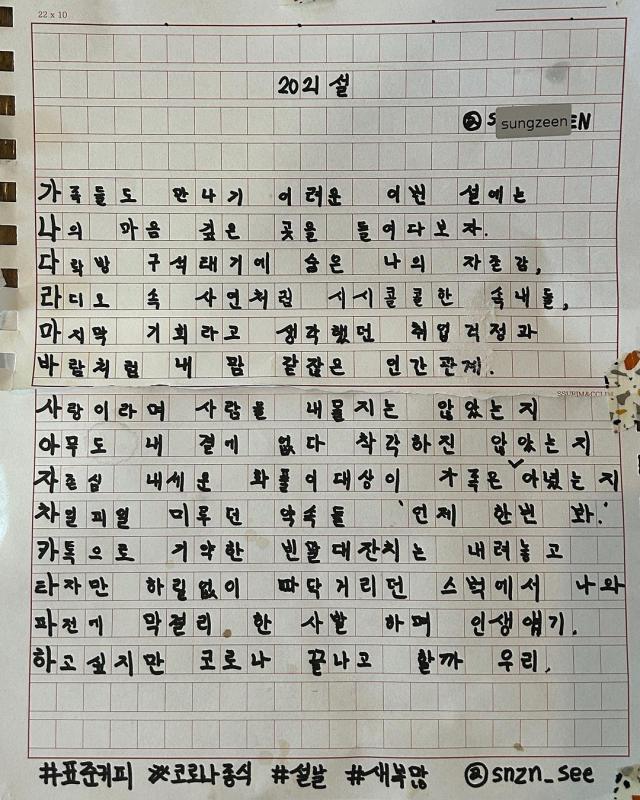 22 x 10
2021 설
sungzeen
가족들도 만나기 어려운 이번 설에는
나의 마음 깊은 곳을 들여다보자.
다락방 구석태기에 숨은 나의 자존감,
라디오 속 사연처럼 시시콜콜한 속내들,
마지막 기회라고 생각했던 취업걱정과
바람처럼 내 맘 같잖은 인간관계.
사랑이라며 사람을 내몰지는 않았는지
아무도 내 곁에 없다 착각하진 않았는지
자존심 내세운 화풀이대상이 가족은 아녔는지
차일피일 미루던 약속들 '언제 한번 봐.'
카톡으로 기약한 빈말대잔치는 내려놓고
타자만 하릴없이 따닥거리던 스벅에서 나와
파전에 막걸리 한 사발 하며 인생얘기.
하고싶지만 코로나 끝나고 할까 우리.
#표준커피 #코로나종식 #설날 #새복많 @snzn_see